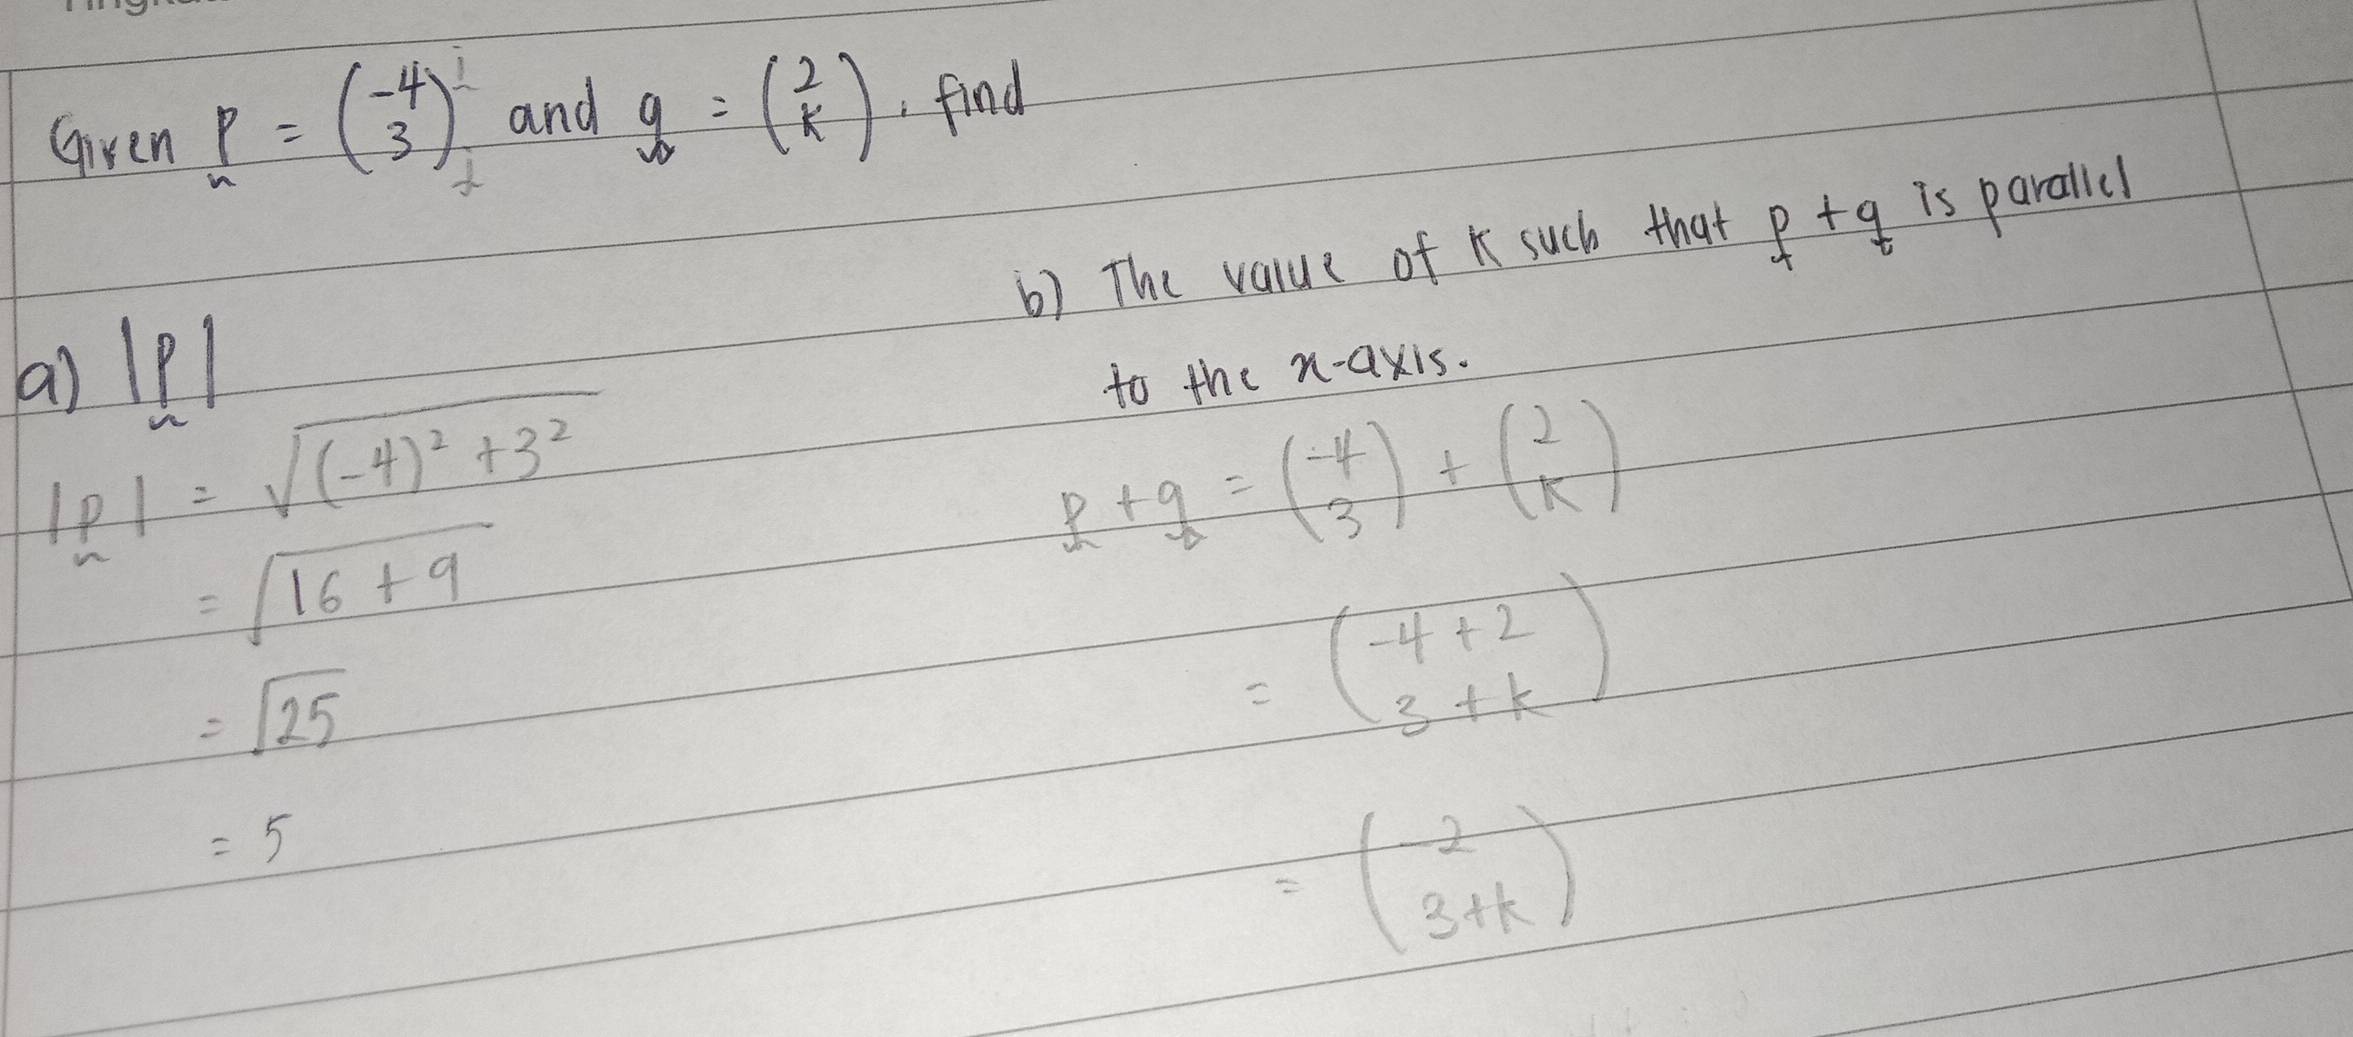 Given p = (-4 3) i j and q = (2 k), find
a) |p|
|p| = √(-4)² + 3²
= √16 + 9
= √25
= 5
b) The value of k such that p + q is parallel
to the x-axis.
p + q = (-4 3) + (2 k)
= (-4 + 2 3 + k)
= (-2 3+k)